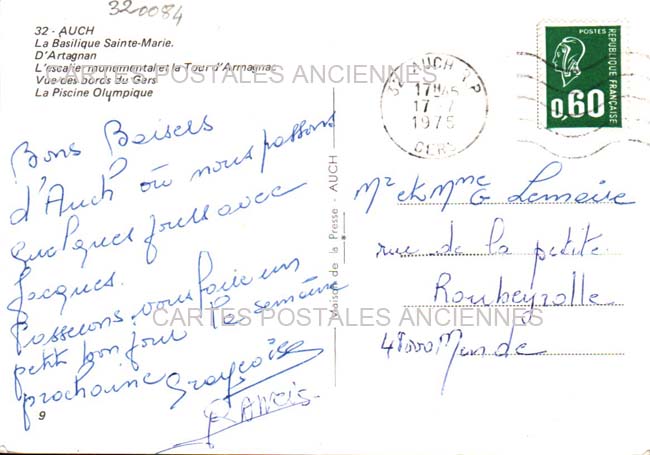 320084
32 - AUCH
La Basilique Sainte-Marie.
D'Artagnan
L'escalier monumental et la Tour d'Armagnac
Vue des bords du Gers
La Piscine Olympique
CARTES POSTALES ANCIENNES
32 AUCH R P
17H45
17 - 7
1975
GERS
POSTES
REPUBLIQUE FRANÇAISE
0,60
Bons Baisers
d'Auch où nous passons
quelques jours avec
Jacques.
Passerons vous faire un
petit bonjour la semaine
prochaine
Francis
9
Maison de la Presse - AUCH
Mr et Mme G Lemaire
rue de la petite
Roubeyrolle
48000 Mende
CARTES POSTALES ANCIENNES